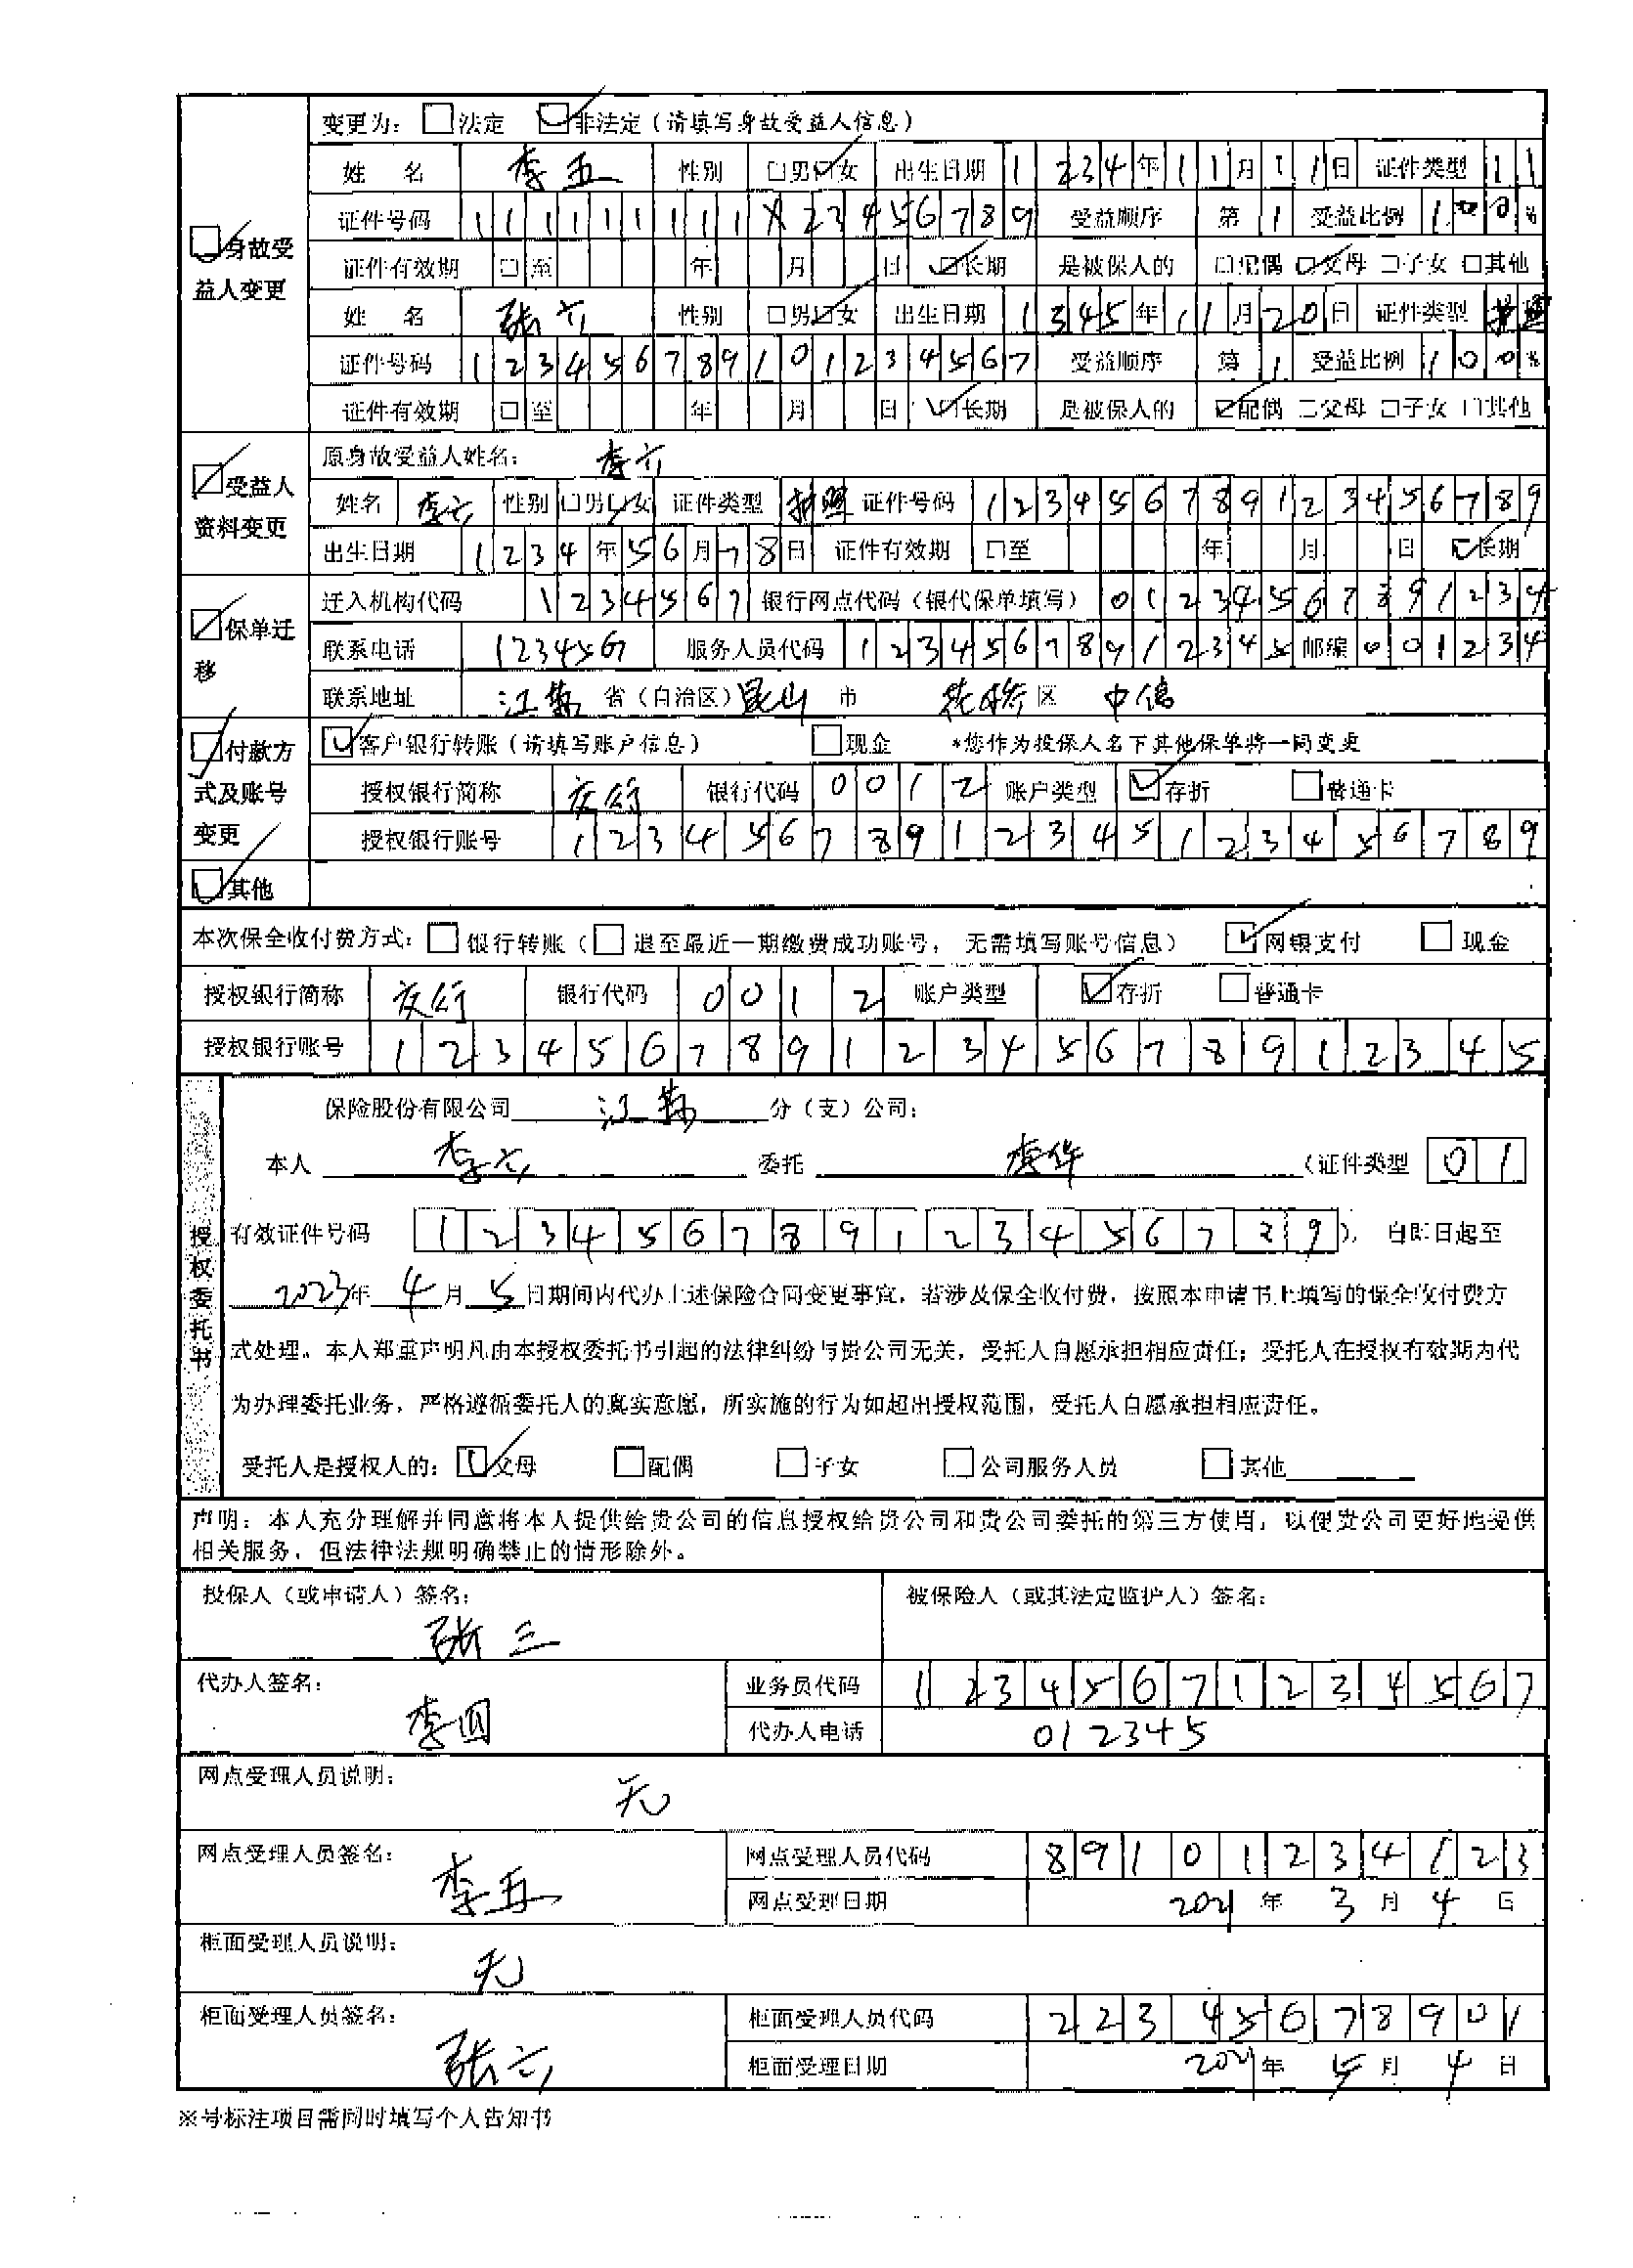 变更为：□法定 ☑非法定（请填写身故受益人信息）
☑身故受益人变更
姓 名 李五 性别 □男☑女 出生日期 1234年11月11日 证件类型 11
证件号码 111111111X23456789 受益顺序 第1 受益比例 100%
证件有效期 □至 年 月 日 ☑长期 是被保人的 □配偶 ☑父母 □子女 □其他
姓 名 张六 性别 □男☑女 出生日期 1345年11月20日 证件类型 护照
证件号码 123456789101234567 受益顺序 第1 受益比例 100%
证件有效期 □至 年 月 日 ☑长期 是被保人的 ☑配偶 □父母 □子女 □其他
☑受益人资料变更
原身故受益人姓名： 李六
姓名 李六 性别 □男☑女 证件类型 护照 证件号码 123456789123456789
出生日期 1234年56月78日 证件有效期 □至 年 月 日 ☑长期
☑保单迁移
迁入机构代码 1234567 银行网点代码（银代保单填写） 01234567891234
联系电话 123456 服务人员代码 12345678912345 邮编 001234
联系地址 江苏 省（自治区）昆山 市 花桥 区 中信
☑付款方式及账号变更
☑客户银行转账（请填写账户信息） □现金 *您作为投保人名下其他保单将一同变更
授权银行简称 农行 银行代码 0012 账户类型 ☑存折 □普通卡
授权银行账号 12345678912345123456789
☑其他
本次保全收付费方式：□银行转账（□退至最近一期缴费成功账号，无需填写账号信息） ☑网银支付 □现金
授权银行简称 农行 银行代码 0012 账户类型 ☑存折 □普通卡
授权银行账号 12345678912345678912345
授权委托书
保险股份有限公司 江苏 分（支）公司：
本人 李六 委托 李华 （证件类型 01
有效证件号码 123456789123456789），自即日起至
2023年 4月 5日期间内代办上述保险合同变更事宜，若涉及保全收付费，按照本申请书上填写的保全收付费方
式处理。本人郑重声明凡由本授权委托书引起的法律纠纷与贵公司无关，受托人自愿承担相应责任；受托人在授权有效期内代
为办理委托业务，严格遵循委托人的真实意愿，所实施的行为如超出授权范围，受托人自愿承担相应责任。
受托人是授权人的：☑父母 □配偶 □子女 □公司服务人员 □其他
声明：本人充分理解并同意将本人提供给贵公司的信息授权给贵公司和贵公司委托的第三方使用，以便贵公司更好地提供
相关服务，但法律法规明确禁止的情形除外。
投保人（或申请人）签名： 张三 被保险人（或其法定监护人）签名：
代办人签名： 李四 业务员代码 12345671234567
代办人电话 012345
网点受理人员说明： 无
网点受理人员签名： 李五 网点受理人员代码 89101234123
网点受理日期 2021年 3月 4日
柜面受理人员说明： 无
柜面受理人员签名： 张六 柜面受理人员代码 22345678901
柜面受理日期 2021年 5月 4日
※号标注项目需同时填写个人告知书